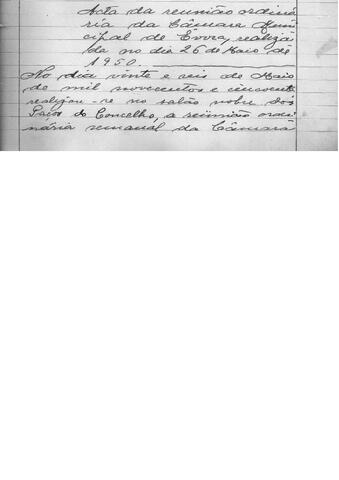 Acta da reunião ordiná
ria da Câmara Muni
cipal de Évora, realiza
da no dia 26 de Maio de
1950.
No dia vinte e seis de Maio
de mil novecentos e cincoenta
realizou-se no salão nobre dos
Paços do Concelho, a reünião ordi-
nária semanal da Câmara